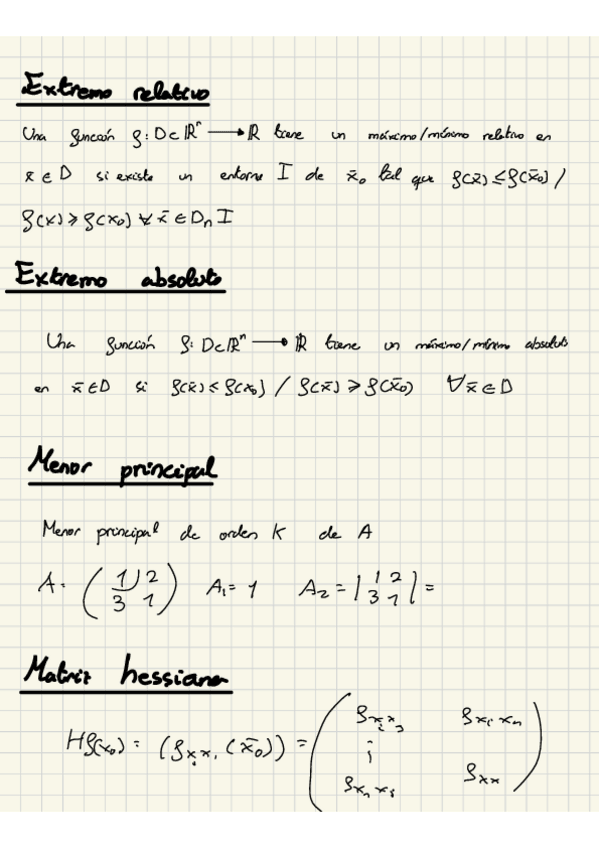 Extremo relativo
Una función f: D⊂ℝⁿ ⟶ ℝ tiene un máximo/mínimo relativo en
x̄ ∈ D si existe un entorno I de x̄₀ tal que f(x̄) ≤ f(x̄₀) /
f(x) ≥ f(x₀) ∀ x̄ ∈ D∩I
Extremo absoluto
Una función f: D⊂ℝⁿ ⟶ ℝ tiene un máximo/mínimo absoluto
en x̄ ∈ D si f(x̄) ≤ f(x₀) / f(x̄) ≥ f(x̄₀) ∀ x̄ ∈ D
Menor principal
Menor principal de orden K de A
A = (1 2 / 3 1) A₁ = 1 A₂ = |1 2 / 3 1| =
Matriz hessiana
Hf(x₀) = (f x x (x̄₀)) =